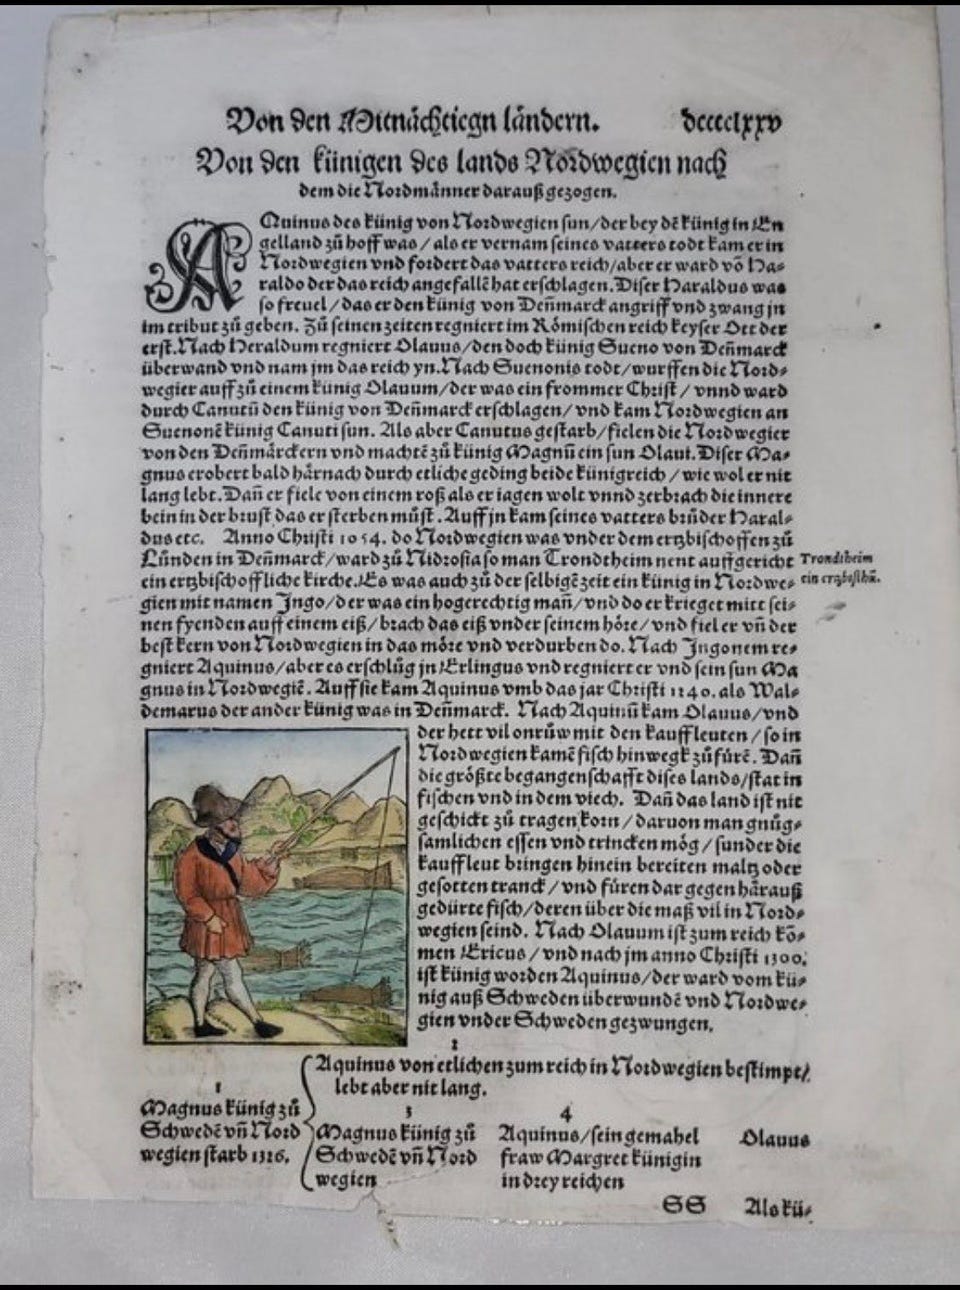 Von den Mitnächtiegn ländern. dccclxxv
Von den künigen des lands Nordwegien nach
dem die Nordmänner darauß gezogen.
AQuinus des künig von Nordwegien sun/der bey dē künig in En
gelland zů hoff was/als er vernam seines vatters todt kam er in
Nordwegien vnd fordert das vatters reich/aber er ward vō Ha-
raldo der das reich angefallē hat erschlagen. Diser Haraldus was
so freuel/das er den künig von Deñmarck angriff vnd zwang jn
im tribut zů geben. Zů seinen zeiten regniert im Römischen reich keyser Ott der
erst. Nach Heraldum regniert Olauus/den doch künig Sueno von Deñmarck
überwand vnd nam jm das reich yn. Nach Suenonis todt/wurffen die Nord-
wegier auff zů einem künig Olauum/der was ein frommer Christ/vnnd ward
durch Canutū den künig von Deñmarck erschlagen/vnd kam Nordwegien an
Suenonē künig Canuti sun. Als aber Canutus gestarb/fielen die Nordwegier
von den Deñmärckern vnd machtē zů künig Magnū ein sun Olaui. Diser Ma-
gnus erobert bald härnach durch etliche geding beide künigreich/wie wol er nit
lang lebt. Dañ er fiele von einem roß als er iagen wolt vnnd zerbrach die innere
bein in der brust das er sterben můst. Auff jn kam seines vatters brůder Haral-
dus etc. Anno Christi 1054. do Nordwegien was vnder dem ertzbischoffen zů
Lünden in Deñmarck/ward zů Nidrosia so man Trondtheim nent auffgericht
Trondtheim
ein ertzbisthū.
ein ertzbischoffliche kirche. Es was auch zů der selbigē zeit ein künig in Nordwe-
gien mit namen Ingo/der was ein hogerechtig mañ/vnd do er krieget mitt sei-
nen fyenden auff einem eiß/brach das eiß vnder seinem höre/vnd fiel er vñ der
best kern von Nordwegien in das möre vnd verdurben do. Nach Ingonem re-
gniert Aquinus/aber es erschlůg jn Erlingus vnd regniert er vnd sein sun Ma
gnus in Nordwegiē. Auff sie kam Aquinus vmb das jar Christi 1240. als Wal-
demarus der ander künig was in Deñmarck. Nach Aquinū kam Olauus/vnd
der hett vil onrůw mit den kauffleuten/so in
Nordwegien kamē fisch hinwegk zů fürē. Dañ
die größte begangenschafft dises lands/stat in
fischen vnd in dem viech. Dañ das land ist nit
geschickt zů tragen korn/daruon man gnůg-
samlichen essen vnd trincken mög/sunder die
kauffleut bringen hinein bereiten maltz oder
gesotten tranck/vnd füren dar gegen härauß
gedürte fisch/deren über die maß vil in Nord-
wegien seind. Nach Olauum ist zum reich kō-
men Ericus/vnd nach jm anno Christi 1300.
ist künig worden Aquinus/der ward vom kü-
nig auß Schweden überwundē vnd Nordwe-
gien vnder Schweden gezwungen.
2
Aquinus von etlichen zum reich in Nordwegien bestimpt/
lebt aber nit lang.
1
Magnus künig zů
Schwedē vñ Nord
wegien starb 1326.
3
Magnus künig zů
Schwedē vñ Nord
wegien
4
Aquinus/sein gemahel
fraw Margret künigin
in drey reichen
Olauus
SS Als kü-